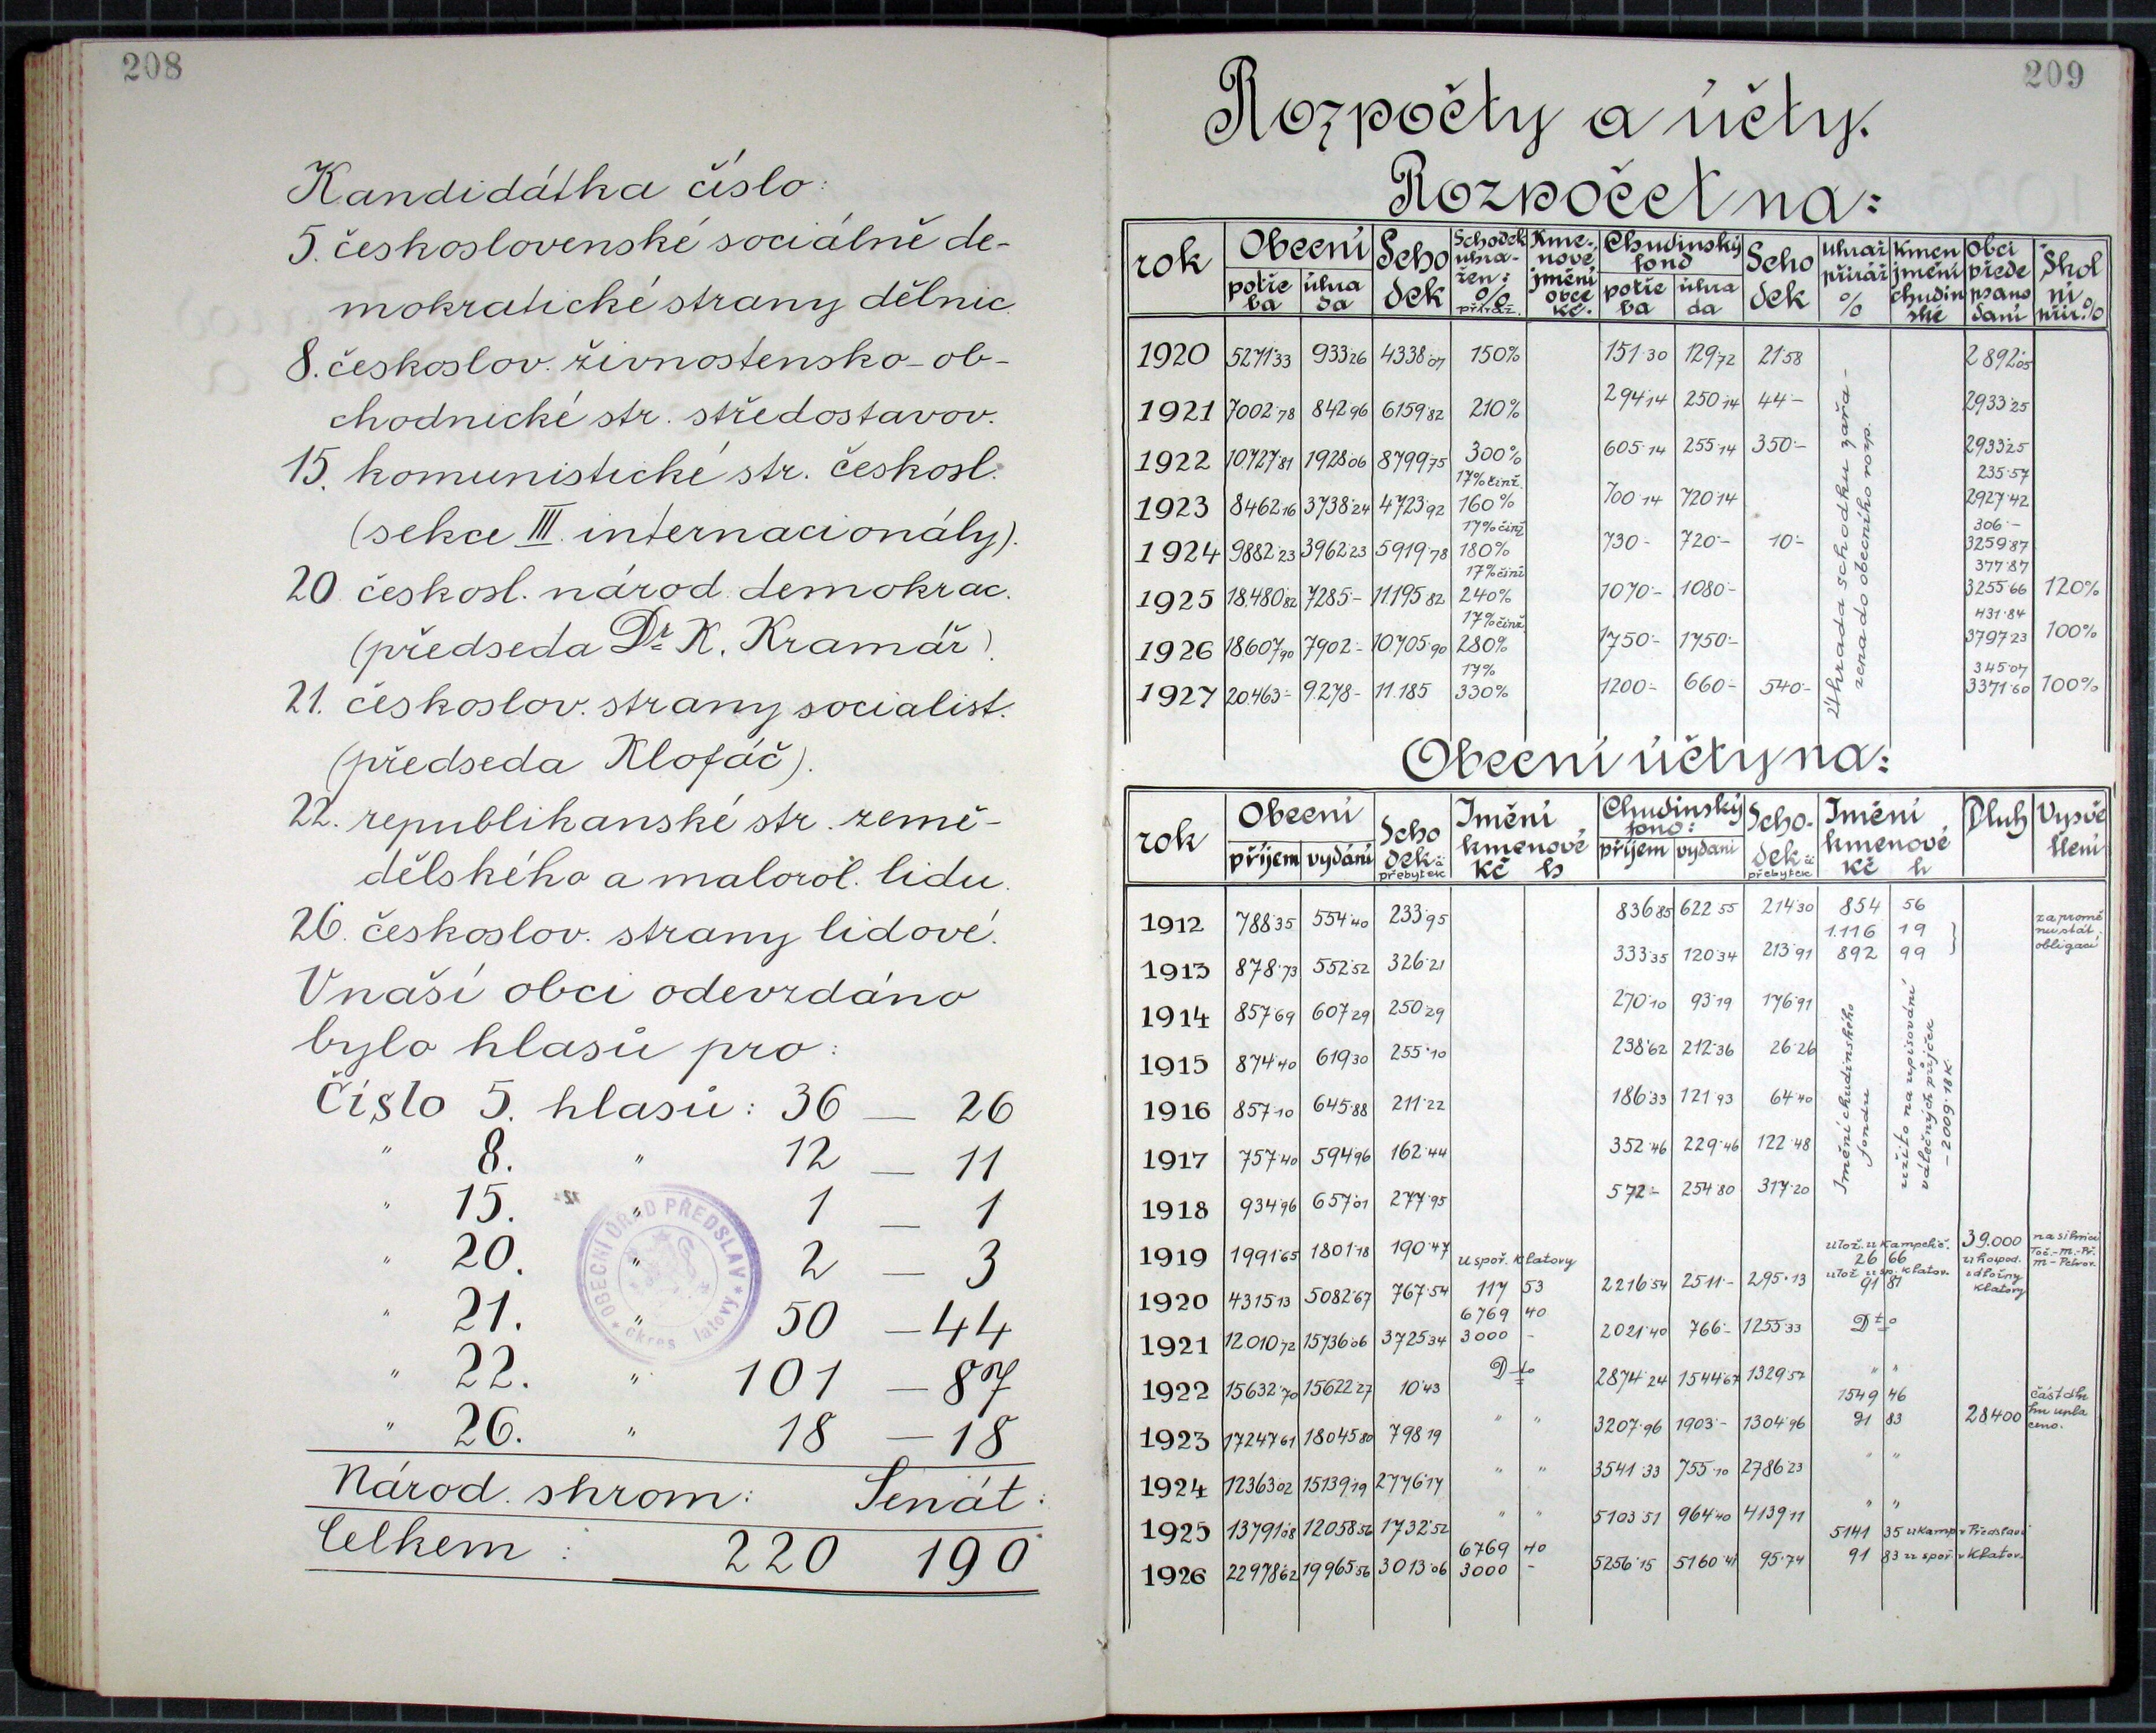 208
Kandidátka číslo:
5. československé sociálně de-
mokratické strany dělnic.
8. českoslov. živnostensko-ob-
chodnické str. středostavov.
15. komunistické str. českosl.
(sekce III. internacionály).
20 českosl. národ. demokrac.
(předseda Dr. K. Kramář).
21. českoslov. strany socialist.
(předseda Klofáč).
22. republikanské str. země-
dělského a malorol. lidu.
26. českoslov. strany lidové.
V naší obci odevzdáno
bylo hlasů pro:
Číslo 5. hlasů: 36 — 26
" 8. " 12 — 11
" 15. " 1 — 1
" 20. " 2 — 3
" 21. " 50 — 44
" 22. " 101 — 87
" 26. " 18 — 18
Národ. shrom: Senát:
Celkem: 220 190
OBECNÍ ÚŘAD PŘEDSLAV
okres latovy
209
Rozpočty a účty.
Rozpočet na:
rok Obecní potře ba úhra da Scho dek Schodek uhra- žen: % přiráž. Kme- nové jmění obce Kč. Chudinský fond potře ba úhra da Scho dek Uhraž přiráž % Kmen jmění chudin ské Obci přede psáno daní Škol ní přir. %
1920 5271·33 933·26 4338·07 150% 151·30 129·72 21·58 2892·05
1921 7002·78 842·96 6159·82 210% 294·14 250·14 44·- 2933·25
1922 10.727·81 1928·06 8799·75 300% 605·14 255·14 350·- 2933·25
17% činž. 235·57
1923 8462·16 3738·24 4723·92 160% 700·14 720·14 2927·42
17% činž 306·-
1924 9882·23 3962·23 5919·78 180% 730·- 720·- 10·- 3259·87
17% činž 377·87
1925 18.480·82 7285·- 11195·82 240% 1070·- 1080·- 3255·66 120%
17% činž 431·84
1926 18607·90 7902·- 10.705·90 280% 1750·- 1750·- 3797·23 100%
17% 345·07
1927 20.463·- 9.278·- 11.185 330% 1200·- 660·- 540·- 3371·60 100%
Úhrada schodku zařa-
zena do obecního rozp.
Obecní účty na:
rok Obecní příjem vydání Scho dek: přebytek Jmění kmenové Kč h Chudinský fond: příjem vydání Scho- dek: přebytek Jmění kmenové Kč h Dluh Vysvě tlení
1912 788·35 554·40 233·95 836·85 622·55 214·30 854 56
1.116 19
za promě
nu stát.
obligací
1913 878·73 552·52 326·21 333·35 120·34 213·91 892 99
1914 857·69 607·29 250·29 270·10 93·19 176·91
1915 874·40 619·30 255·10 238·62 212·36 26·26
1916 857·10 645·88 211·22 186·33 121·93 64·40
1917 757·40 594·96 162·44 352·46 229·46 122·48
1918 934·96 657·01 277·95 572·- 254·80 317·20
Jmění chudinského
fondu
užito na upisování
válečných půjček
- 2009·18 K.
1919 1991·65 1801·18 190·47
u spoř. Klatovy
ulož. u Kampelič.
26 66
ulož u sp. Klatov.
39.000
u hospod.
záložny
Klatovy
na silnici
Toč.-M.-Př.
M-Petrov.
1920 4315·13 5082·67 767·54 117 53 2216·54 2511·- 295·13 91 81
6769 40
1921 12.010·72 15736·06 3725·34 3000 - 2021·40 766·- 1255·33 Dto
1922 15632·70 15622·27 10·43 Dto 2874·24 1544·67 1329·57 " "
1549 46
1923 17247·61 18045·80 798·19 " " 3207·96 1903·- 1304·96 91 83 28400
část dlu
hu upla
ceno.
1924 12363·02 15139·19 2776·17 " " 3541·33 755·10 2786·23 " "
1925 13791·08 12058·56 1732·52 " " 5103·51 964·40 4139·11 " "
6769 40 5141 35 u Kamp. v Předslavi
1926 22978·62 19965·56 3013·06 3000 - 5256·15 5160·41 95·74 91 83 u spoř. v Klatov.